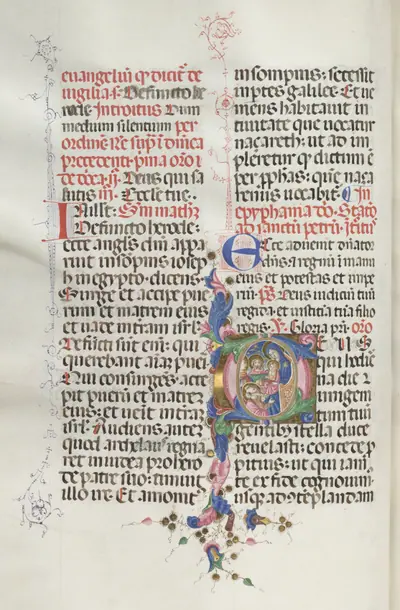 evangeliũ q̃ dicit̃ de
vigilia s̃. Defuncto he
rode. Introitus Dum
medium silentium per
ordinẽ
precedenti. p̃ma orõ
Deus qui sa
lutis
In illo t̃. Scđm matħ
Defuncto herode.
ecce angl̃s dñi appa
ruit in sõpnis iosep
h in egypto. dicens.
Surge et accipe pue
rum et matrem eius
et vade in terram isrl̃.
Defũcti sunt enĩ. qui
querebant aĩaz pueri
Qui consurgẽs. acce
pit puerũ et matrez
eius. et venit in terrã
isrl̃. Audiens autez
quod archelaus regna
ret in iudea pro hero
de patre suo. timuit
illo ire. Et amonit᷒
in sompnis. secessit
in p̃tes galilee. Et ve
niens habitavit in
civitate que vocatur
nazareth. ut ad im
pleretur q̃ dictum ẽ
per p̃phãs. que naza
renus vocabit᷒. In
epyphania dñi. Statõ
ad sanctũ petrũ. Itũs
Ecce advenit dñator
dñs. et regnũ in manu
eius et potestas et impe
rium. p̃s. Deus iudiciũ tuũ
regi da. et iustitiã tuã filio
regis. V̄. Gloria pr̃i. orõ
Deus
qui hodier
na die v
nigeni
tum tuũ
gentibus stella duce
revelasti. concede p̃
pitius. ut qui iam
te ex fide cognovim᷒.
usque ad cõtẽplandam